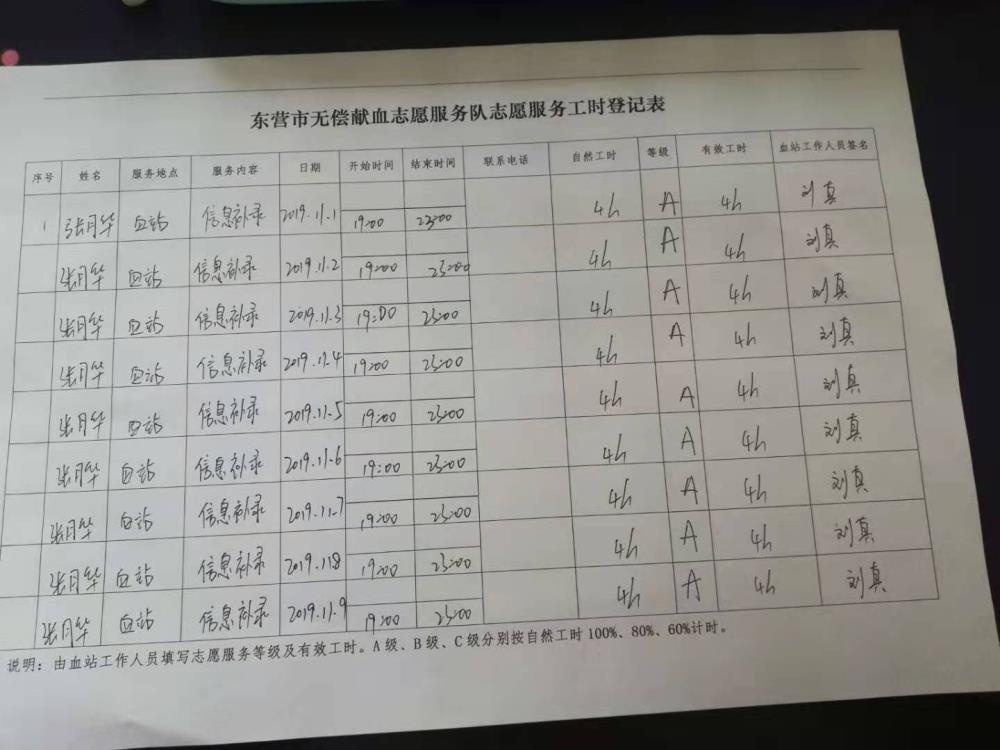 东营市无偿献血志愿服务队志愿服务工时登记表
序号 姓名 服务地点 服务内容 日期 开始时间 结束时间 联系电话 自然工时 等级 有效工时 血站工作人员签名
1 张月华 血站 信息补录 2019.11.1 19:00 23:00 4h A 4h 刘真
张月华 血站 信息补录 2019.11.2 19:00 23:00 4h A 4h 刘真
张月华 血站 信息补录 2019.11.3 19:00 23:00 4h A 4h 刘真
张月华 血站 信息补录 2019.11.4 19:00 23:00 4h A 4h 刘真
张月华 血站 信息补录 2019.11.5 19:00 23:00 4h A 4h 刘真
张月华 血站 信息补录 2019.11.6 19:00 23:00 4h A 4h 刘真
张月华 血站 信息补录 2019.11.7 19:00 23:00 4h A 4h 刘真
张月华 血站 信息补录 2019.11.8 19:00 23:00 4h A 4h 刘真
张月华 血站 信息补录 2019.11.9 19:00 23:00 4h A 4h 刘真
说明：由血站工作人员填写志愿服务等级及有效工时。A级、B级、C级分别按自然工时100%、80%、60%计时。